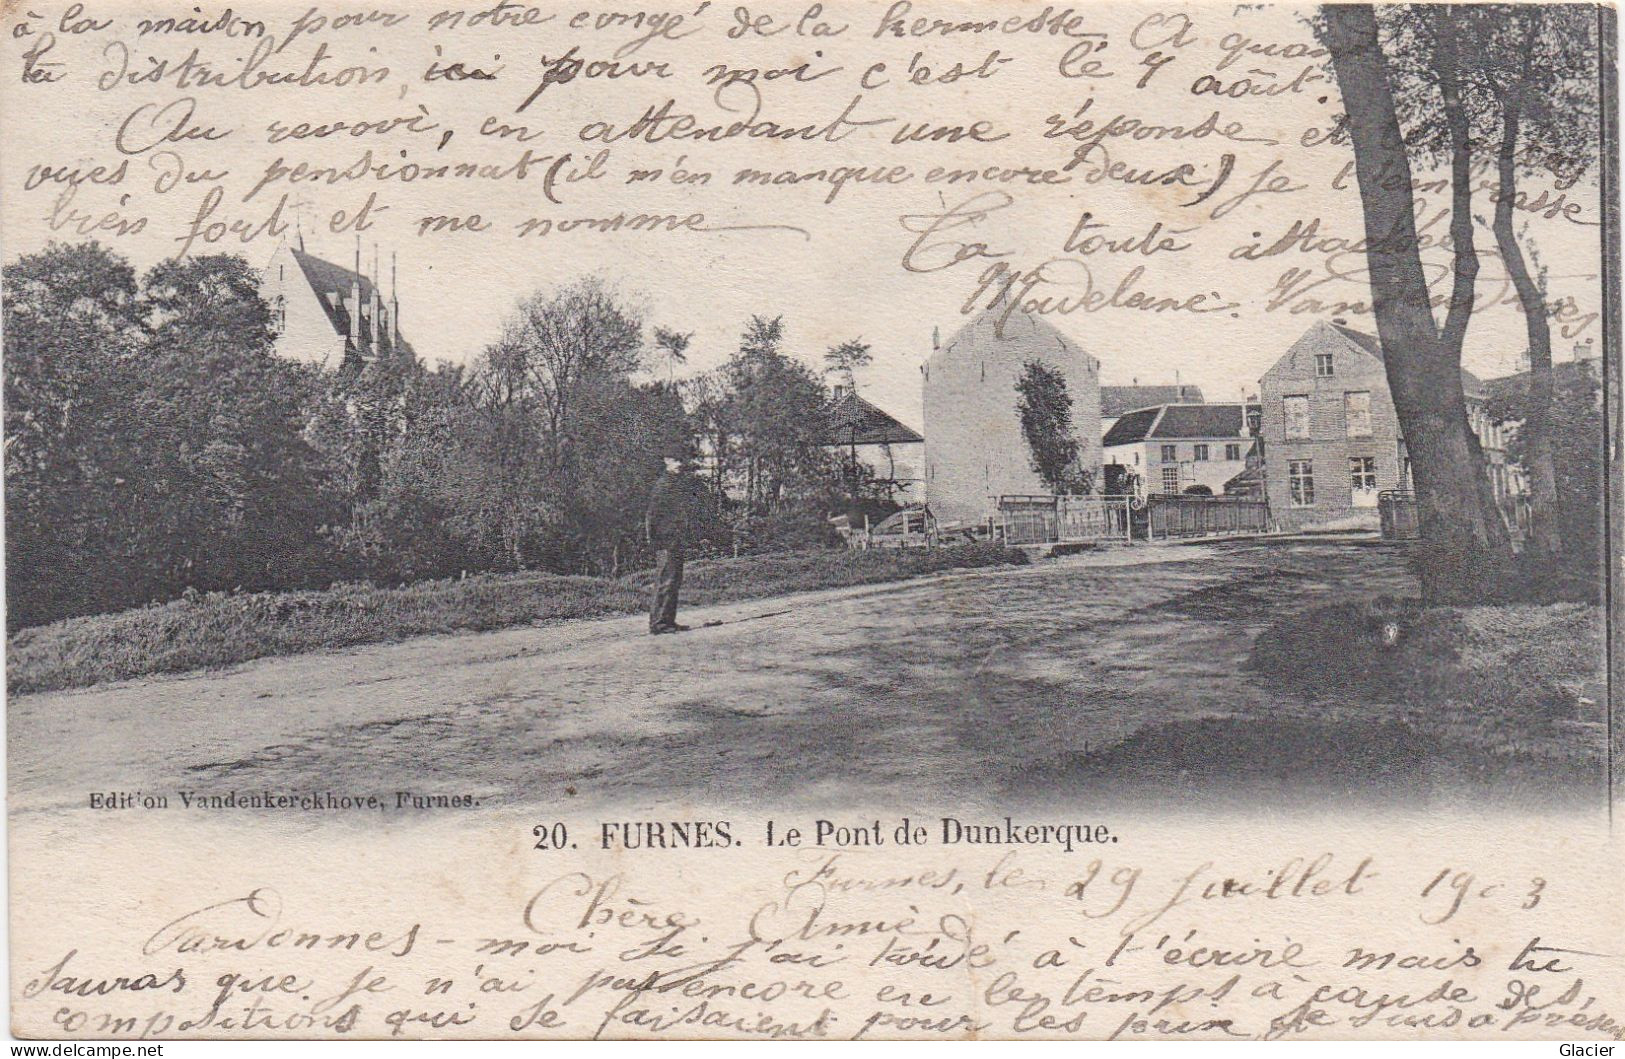 à la maison pour notre congé de la kermesse A quand
ta distribution, ici pour moi c'est le 4 août.
Au revoir, en attendant une réponse et
vues du pensionnat (il m'en manque encore deux) je t'embrasse
bien fort et me nomme
Ta toute attachée
Madeleine
Edition Vandenkerckhove, Furnes.
20. FURNES. Le Pont de Dunkerque.
Furnes, le 29 Juillet 1903
Chère Amie
Pardonnes-moi si j'ai tardé à t'écrire mais tu
sauras que je n'ai pas encore eu le temps à cause des
compositions qui se faisaient pour les prix, je suis à présent
delcampe.net
Glacier